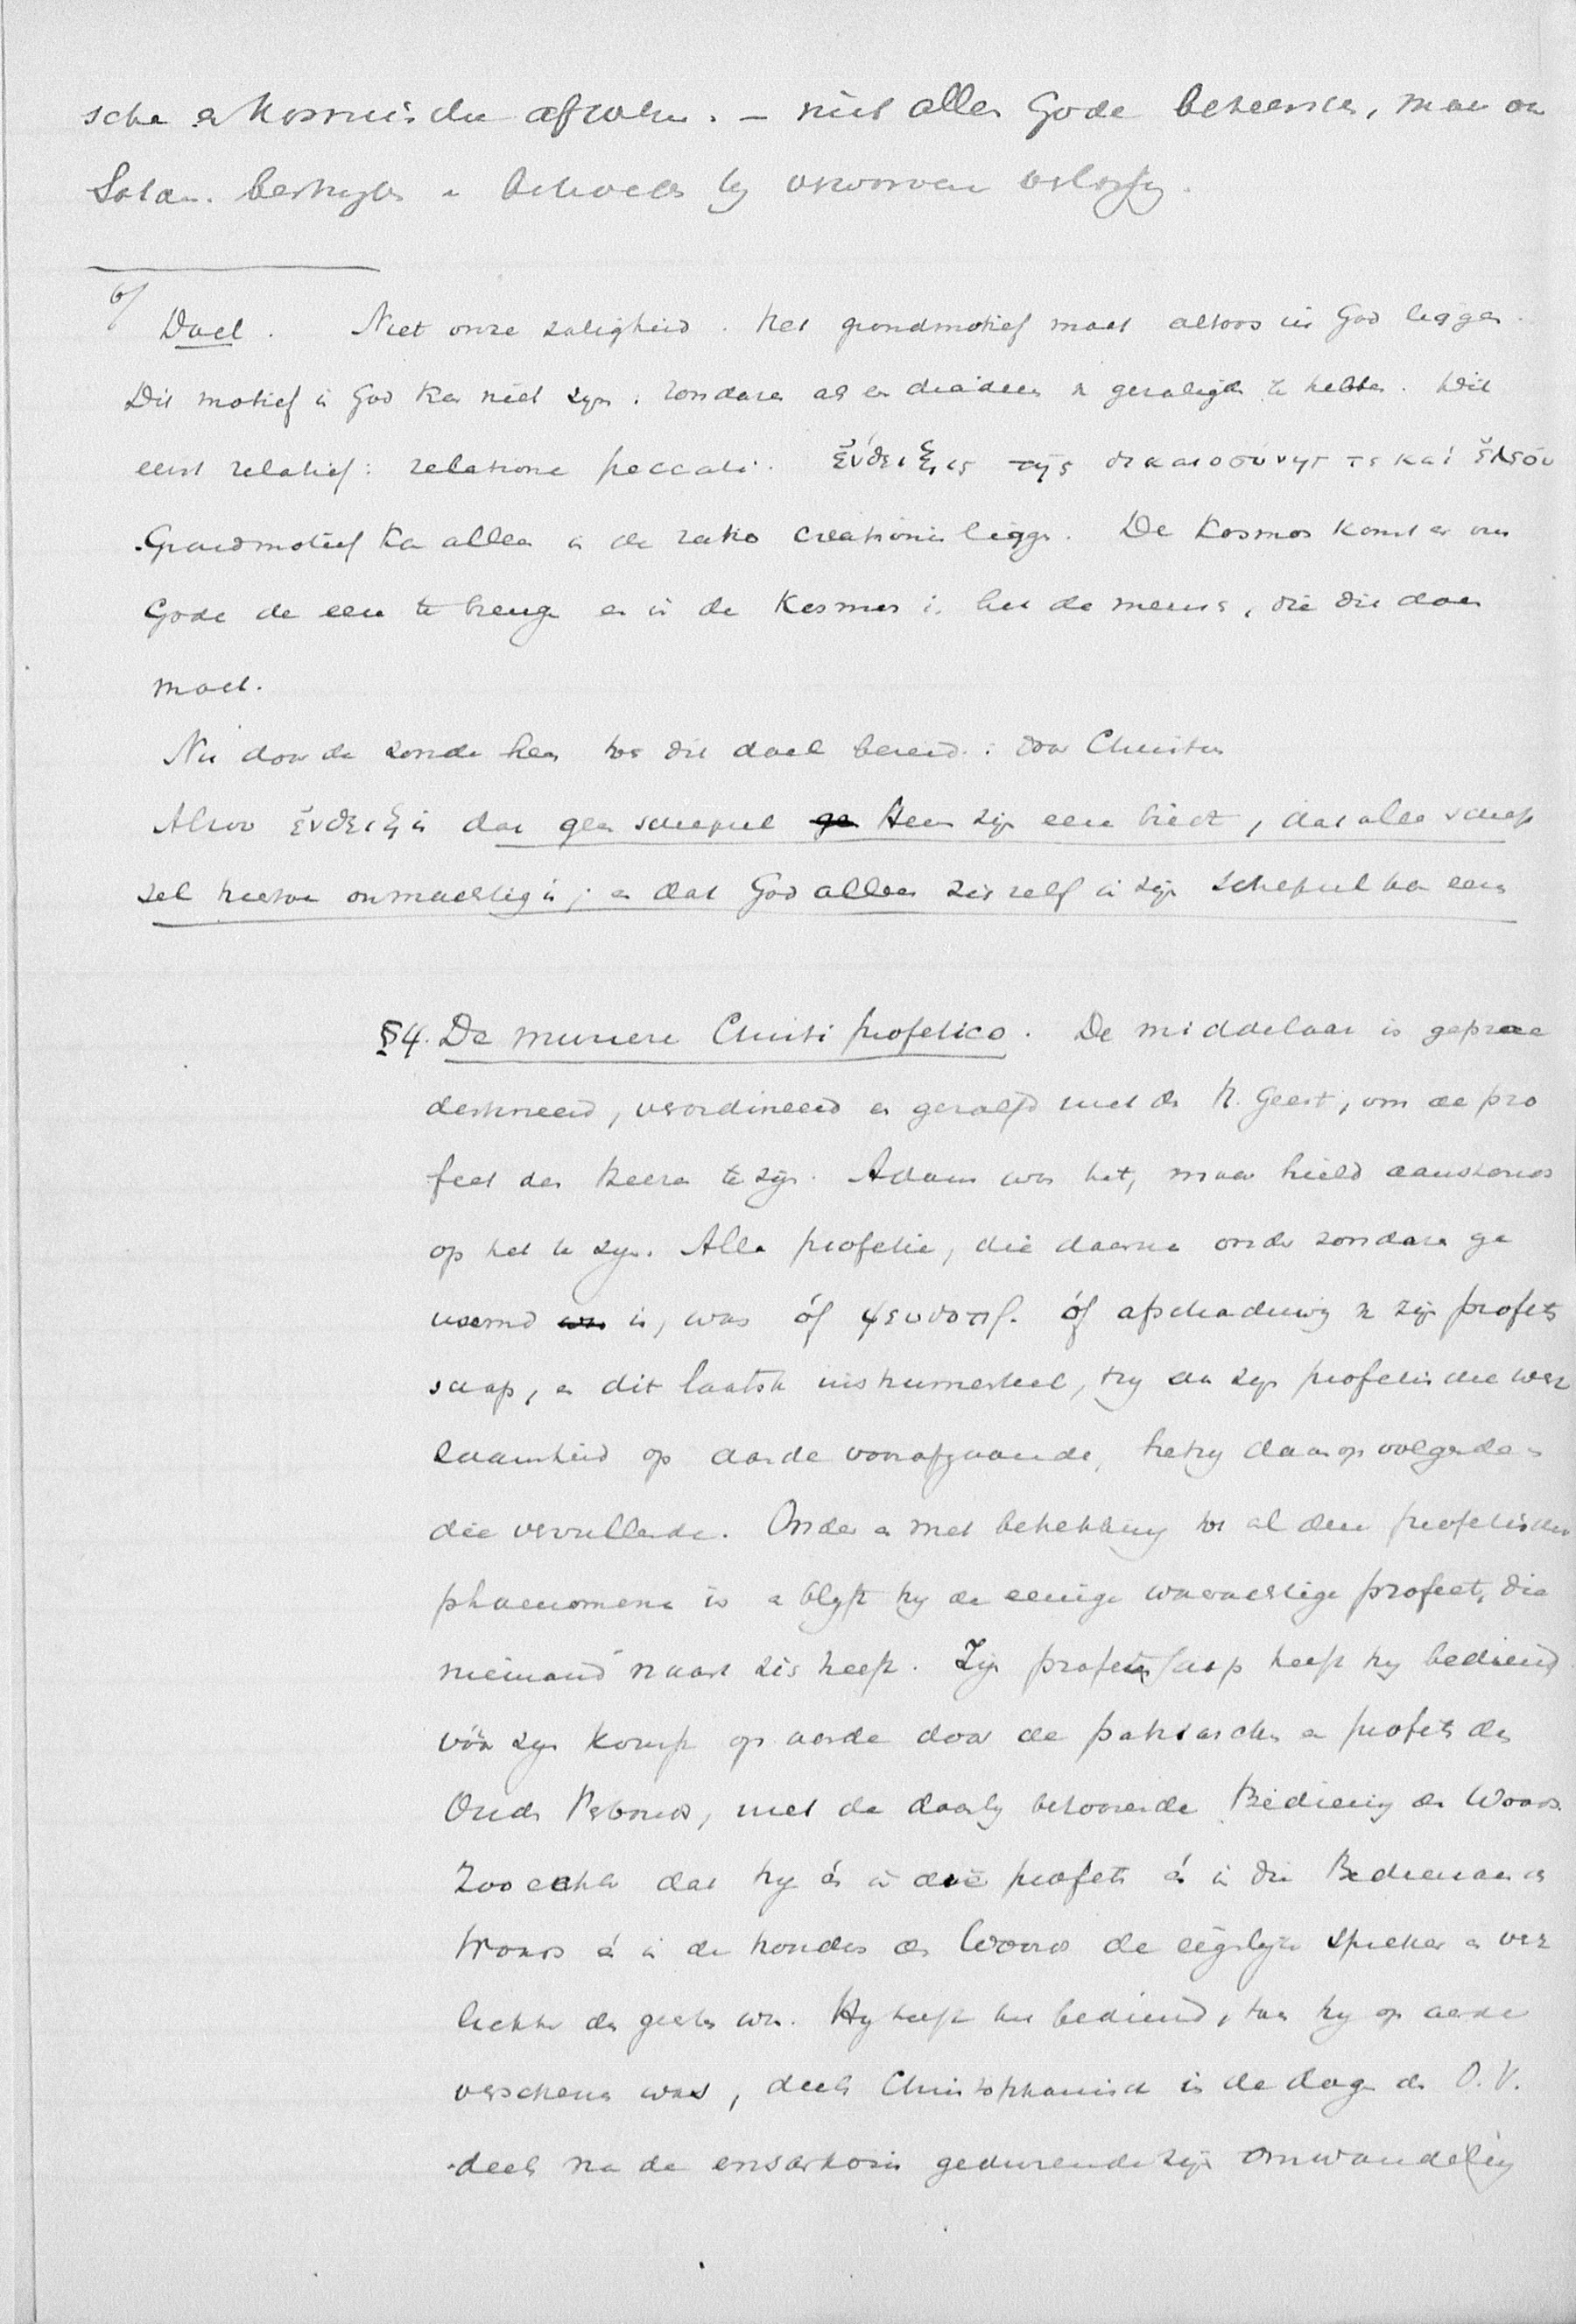 sche & Kosmische afwer. – niet alles Gode beheersch, maar
Satan. bestryder
b/
Doel. Niet onze zaligheid. Het grondmotief moet altoos in God liggen.
Dit motief in God kan niet zijn: zondaren als en te hebben. Dit
eerst relatief: relatione peccati. ἔνδειξις τῆς δικαιοσύνης τε καὶ ἐλέου
Grondmotief kan alleen in de ratio creationis liggen. De Kosmos komt er om
Gode de eere te brengen en in de Kosmos is het de mensch, die dit doen
moet.
Nu door de zonde heen tot dit doel bereid: door Christus
Alzoo ἔνδειξις dat geen schepsel Hem zijn eere biedt, dat alle schep
sel hiertoe onmachtig is; en dat God alleen zich zelf in zijn schepsel kan eeren
§4. De munere Christi profetico. De middelaar is geprae
destineerd, verordineerd en gezalfd met den H. Geest, om de pro
feet des Heeren te zijn. Adam was het, maar hield aanstonds
op het te zijn. Alle profetie, die daarna onder zondaren ge
weest is, was óf ψευδοπρ. óf afschaduwing v zijn profeet
schap, en dit laatste instrumenteel, hy aan zijn profetische werk
zaamheid op aarde voorafgaande, hetzy daarop volgende en
die vervullende. Onder en met betrekking tot al deze profetische
phaenomena is en blyft hy de eenige waarachtige profeet, die
niemand naast zich heeft. Zijn profeetschap heeft hy bediend
vóór zijn komst op aarde door de patriarchen en profeten des
Ouden Verbonds, met de daarby behoorende Bediening des Woords.
Zoo echter dat hy én in die profeten én in die Bedienaren des
Woords én in de houders des Woords de eigenlijke spreker en ver
lichter der geesten was. Hy heeft het bediend, toen hy op aarde
verschenen was, deels Christophanisch in de dagen des O.V.
deels na de ensarkosis gedurende zijn omwandeling